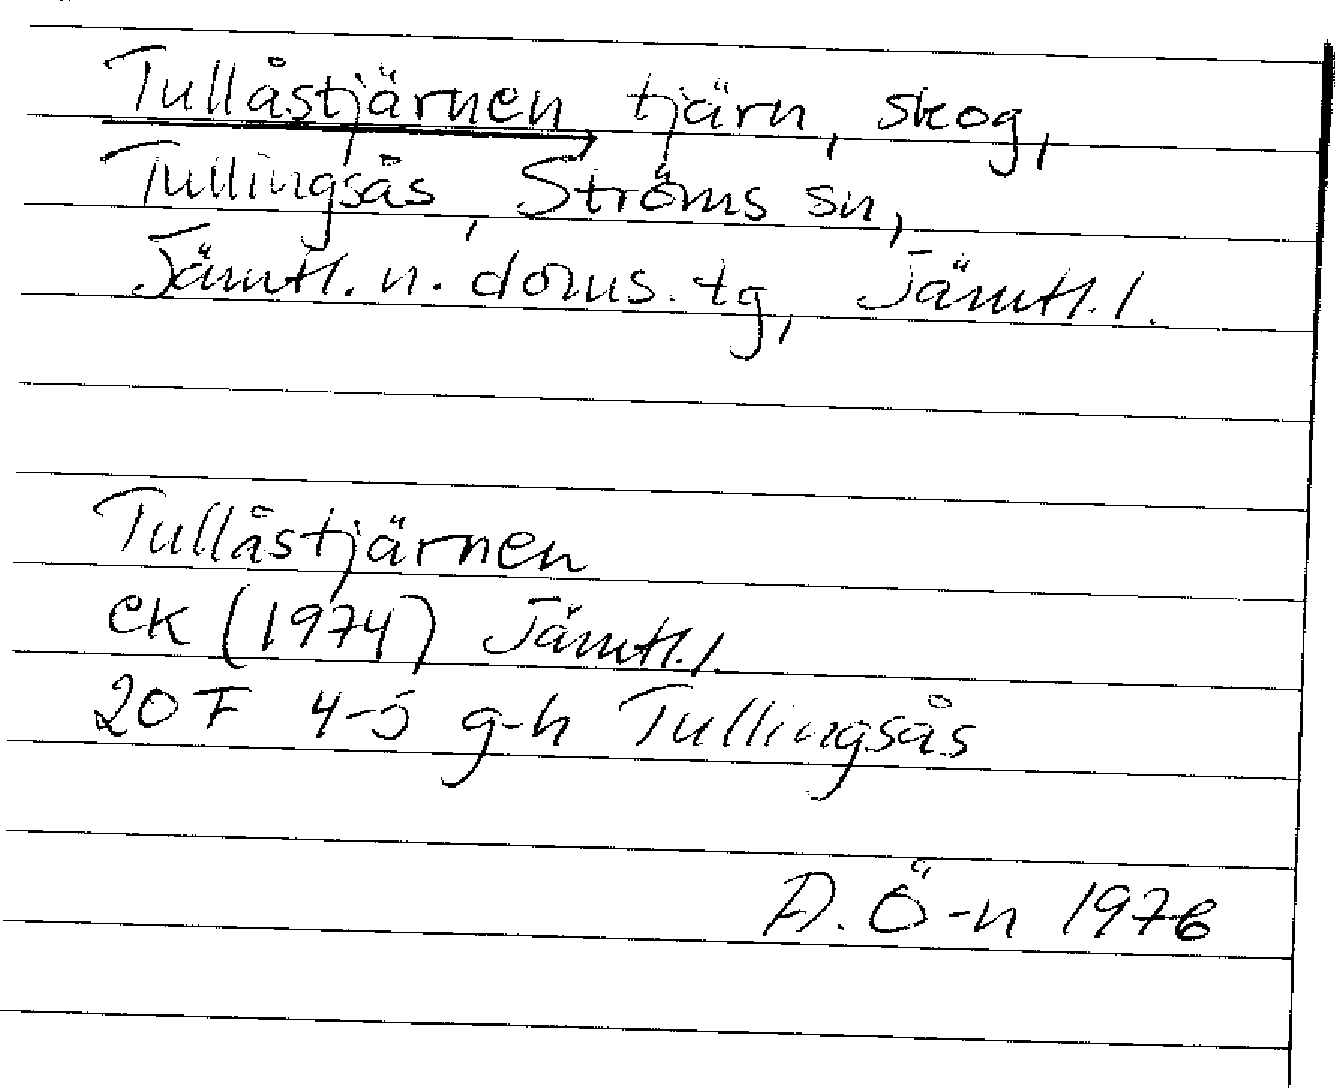 Tullåstjärnen, tjärn, skog,
Tullingsås, Ströms sn,
Jämtl. n. doms. tg, Jämtl. l.
Tullåstjärnen
ek (1974) Jämtl. l.
20 F 4-5 g-h Tullingsås
A. Ö-n 1976